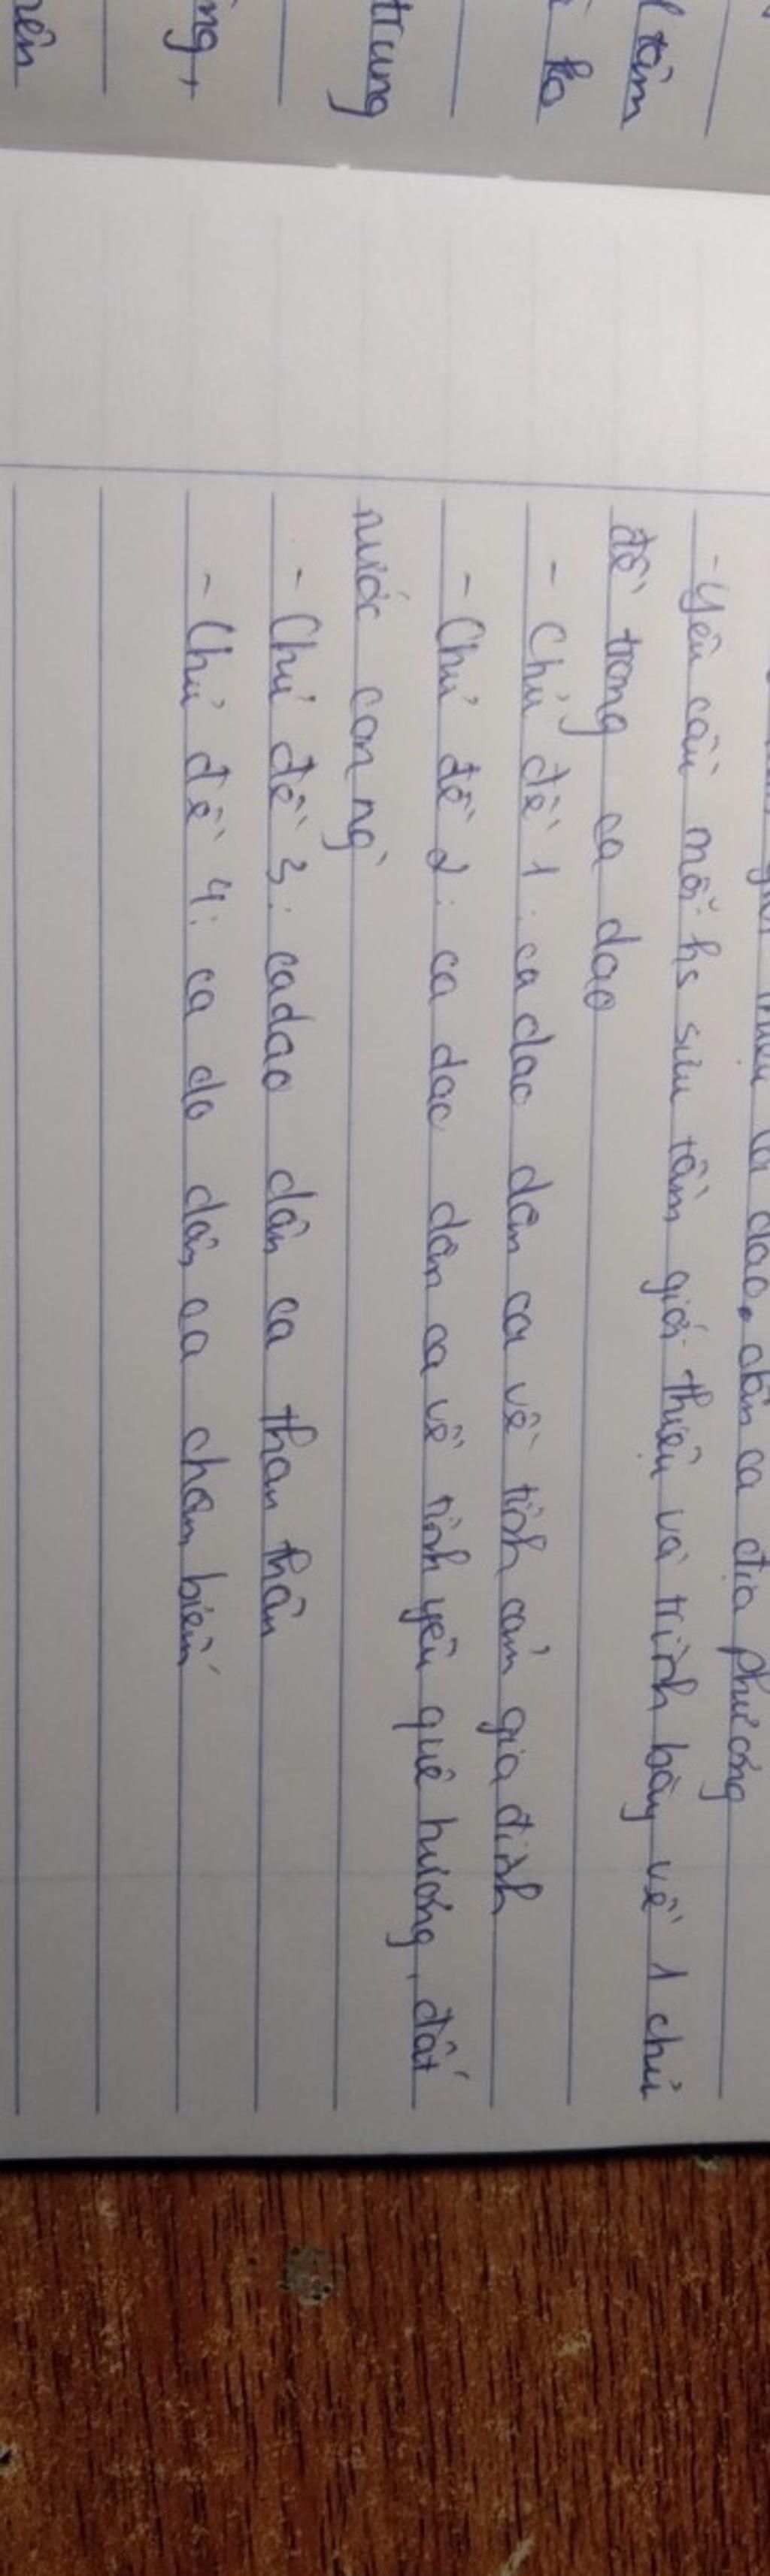 ca dao, dân ca địa phương
- Yêu cầu mỗi hs sưu tầm giới thiệu và trình bày về 1 chủ
đề trong ca dao
- Chủ đề 1: ca dao dân ca về tình cảm gia đình
- Chủ đề 2: ca dao dân ca về tình yêu quê hương, đất
nước con ng`
- Chủ đề 3: cadao dân ca than thân
- Chủ đề 4: ca do dân ca châm biếm
tầm
ko
trung
ng +
nên